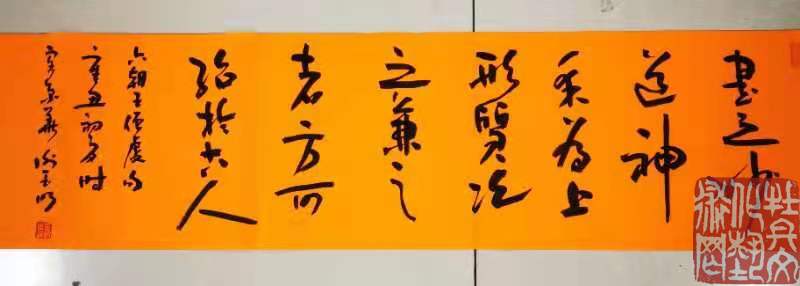 書之妙
道神
采为上
形質次
之兼之
者方可
绍於古人
六朝王僧虔句
辛丑初夏时